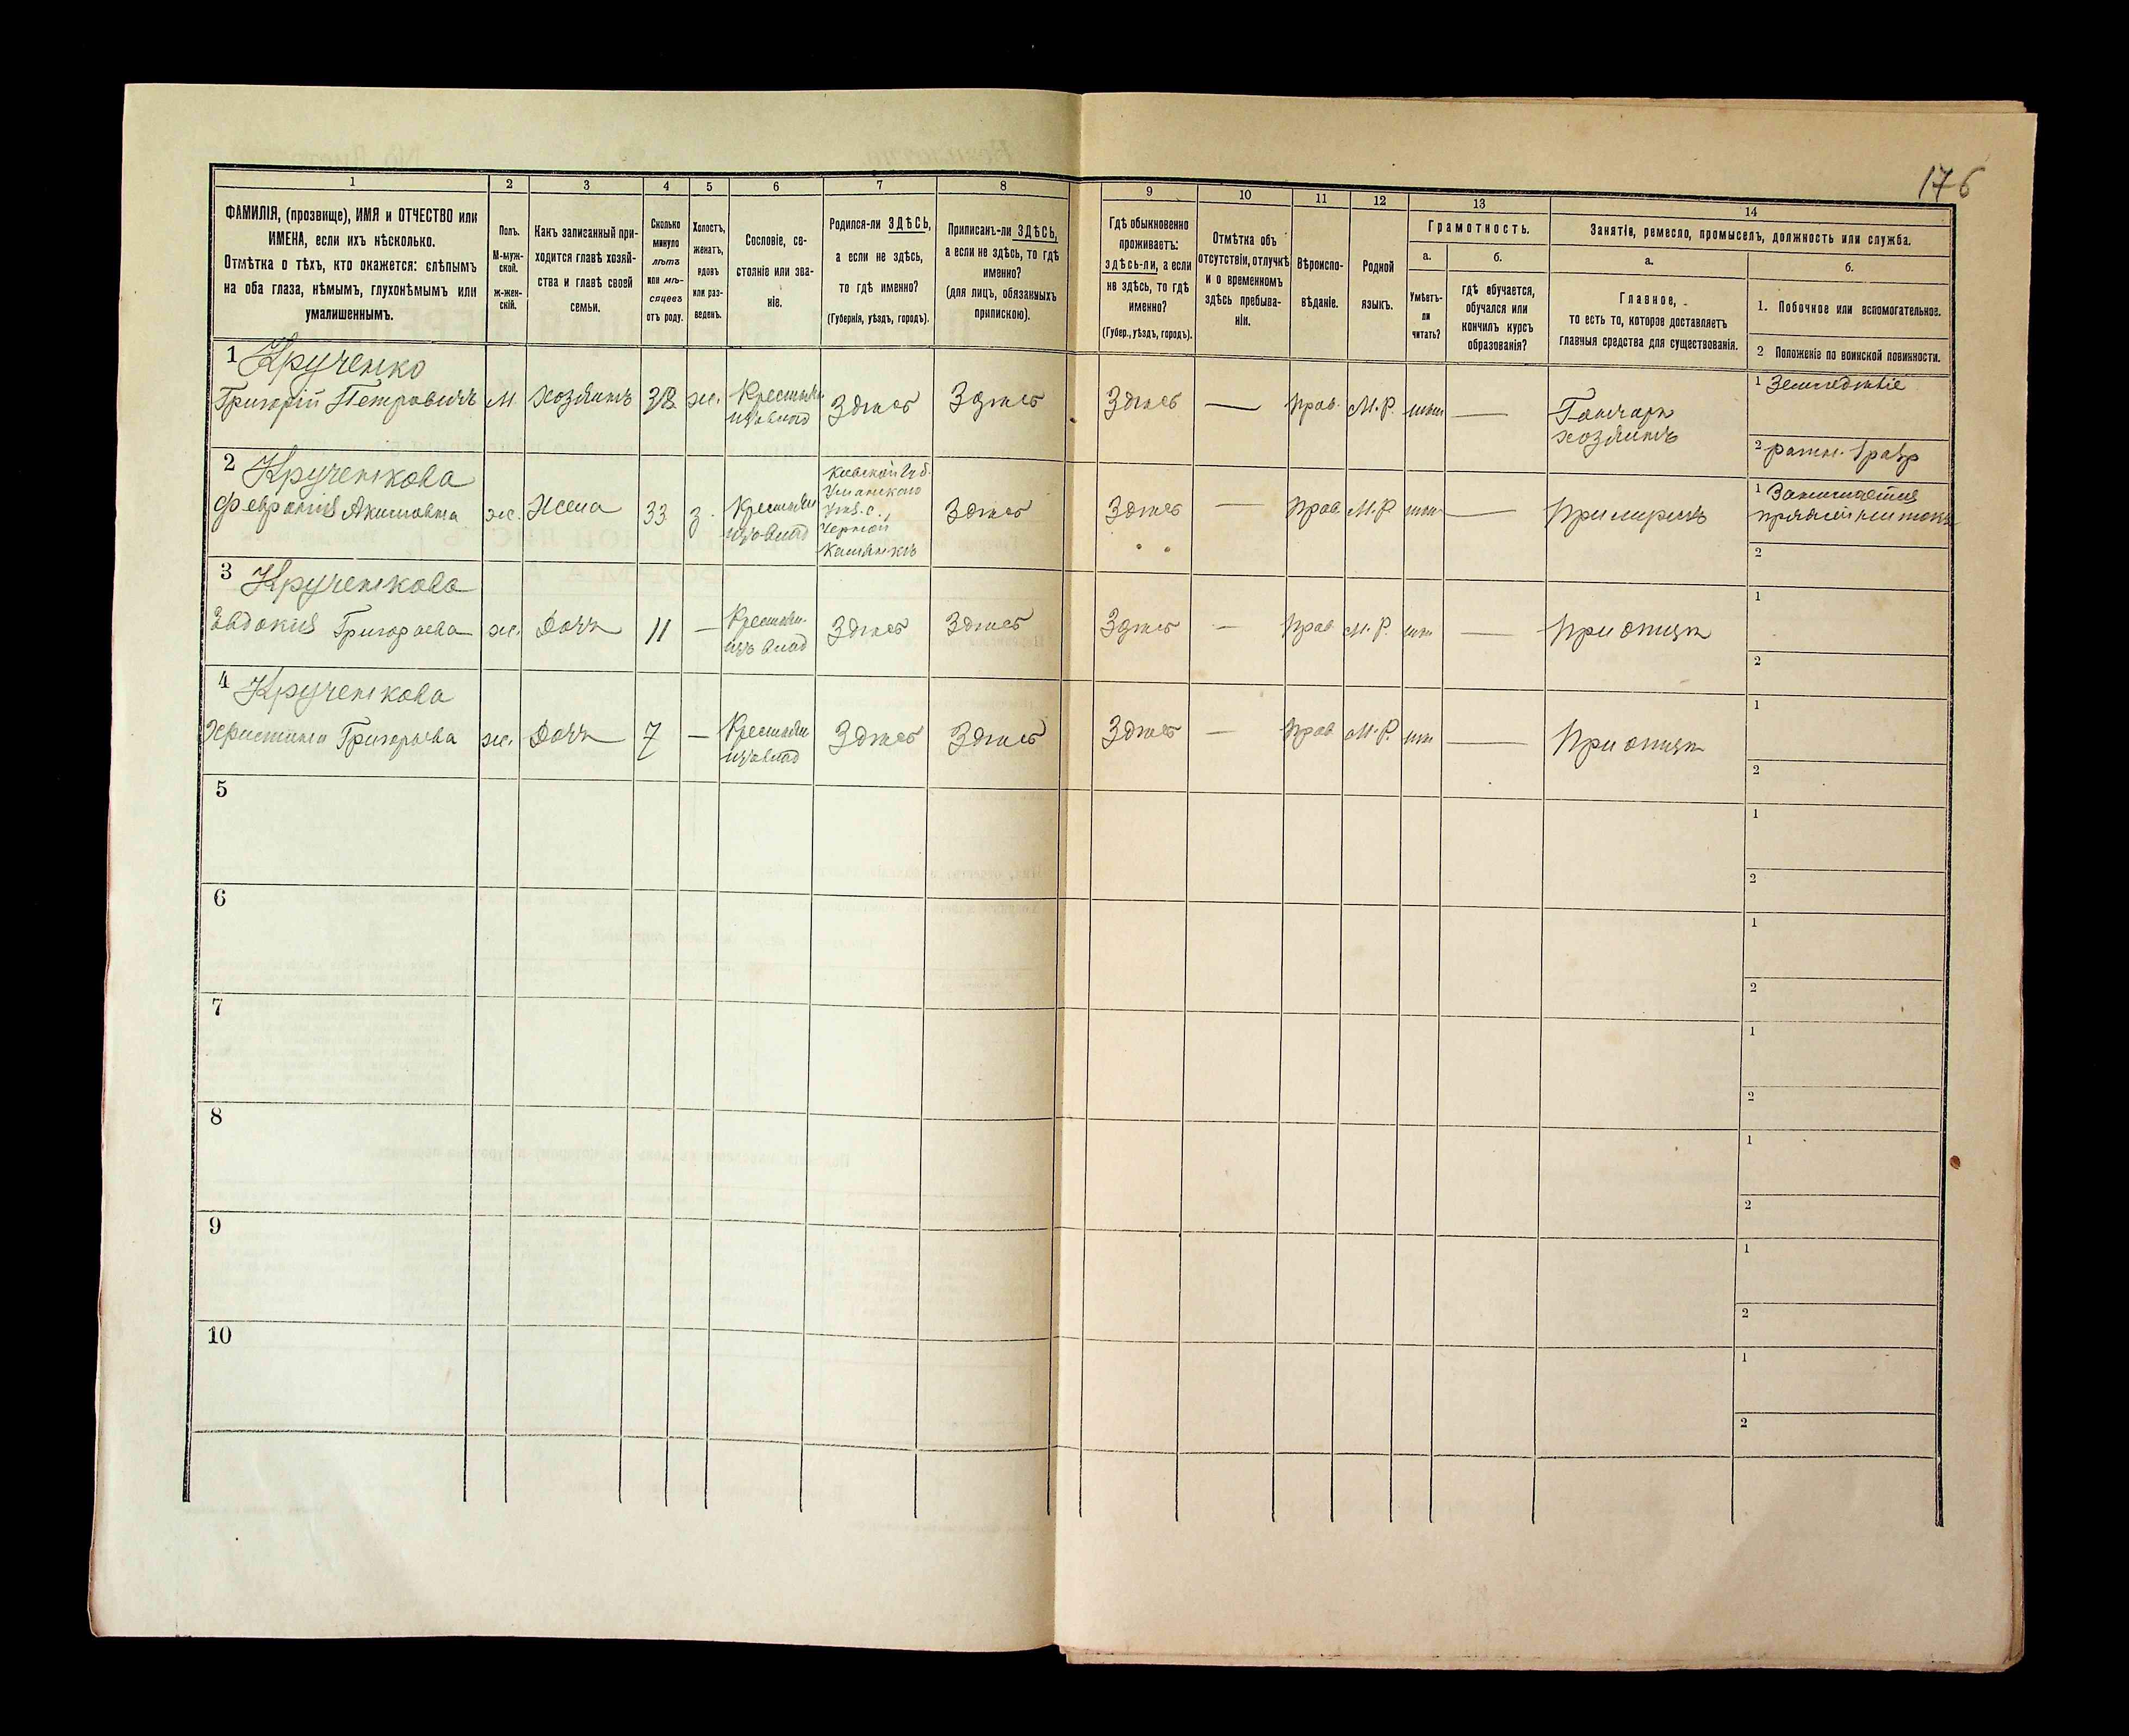 176
1 2 3 4 5 6 7 8 9 10 11 12 13 14
ФАМИЛІЯ, (прозвище), ИМЯ и ОТЧЕСТВО или
ИМЕНА, если ихъ нѣсколько.
Отмѣтка о тѣхъ, кто окажется: слѣпымъ
на оба глаза, нѣмымъ, глухонѣмымъ или
умалишеннымъ.
Полъ.
М-муж-
ской.
Ж-жен-
скій.
Какъ записанный при-
ходится главѣ хозяй-
ства и главѣ своей
семьи.
Сколько
минуло
лѣтъ
или мѣ-
сяцевъ
отъ роду.
Холостъ,
женатъ,
вдовъ
или раз-
веденъ.
Сословіе, со-
стояніе или зва-
ніе.
Родился-ли ЗДѢСЬ,
а если не здѣсь,
то гдѣ именно?
(Губернія, уѣздъ, городъ).
Приписанъ-ли ЗДѢСЬ,
а если не здѣсь, то гдѣ
именно?
(для лицъ, обязанныхъ
припискою).
Гдѣ обыкновенно
проживаетъ:
ЗДѢСЬ-ЛИ, а если
не здѣсь, то гдѣ
именно?
(Губер., уѣздъ, городъ).
Отмѣтка объ
отсутствіи, отлучкѣ
и о временномъ
здѣсь пребыва-
ніи.
Вѣроиспо-
вѣданіе.
Родной
языкъ.
Грамотность.
а.
Умѣетъ-
ли
читать?
б.
гдѣ обучается,
обучался или
кончилъ курсъ
образованія?
Занятіе, ремесло, промыселъ, должность или служба.
а.
Главное,
то есть то, которое доставляетъ
главныя средства для существованія.
б.
1. Побочное или вспомогательное.
2 Положеніе по воинской повинности.
1 Крученко
Григорій Петровичъ М хозяинъ 38 ж. Крестьян Здѣсь Здѣсь Здѣсь — прав. М.Р. нѣтъ — Гончаръ
изъ влад
хозяинъ
1 Земледѣліе
2 ратн. 1 разр
2 Крученкова
Февронія Акимовна ж. Жена 33 з. Крестьян
изъ влад
Кіевской губ.
Уманскаго
уѣз. с.
Черной
Каменкѣ
Здѣсь Здѣсь — Прав. М.Р. нѣтъ — При мужѣ
1 Занимается
пряжей нитокъ
2
3 Крученкова
Евдокія Григорьева ж. Дочь 11 — Крестьян.
изъ влад
Здѣсь Здѣсь Здѣсь — Прав М.Р. нѣт — При отцѣ
1
2
4 Крученкова
Христина Григорьева ж. Дочь 7 — Крестьян
изъ влад
Здѣсь Здѣсь Здѣсь — Прав М.Р. нѣт — При отцѣ
1
2
5
1
2
6
1
2
7
1
2
8
1
2
9
1
2
10
1
2